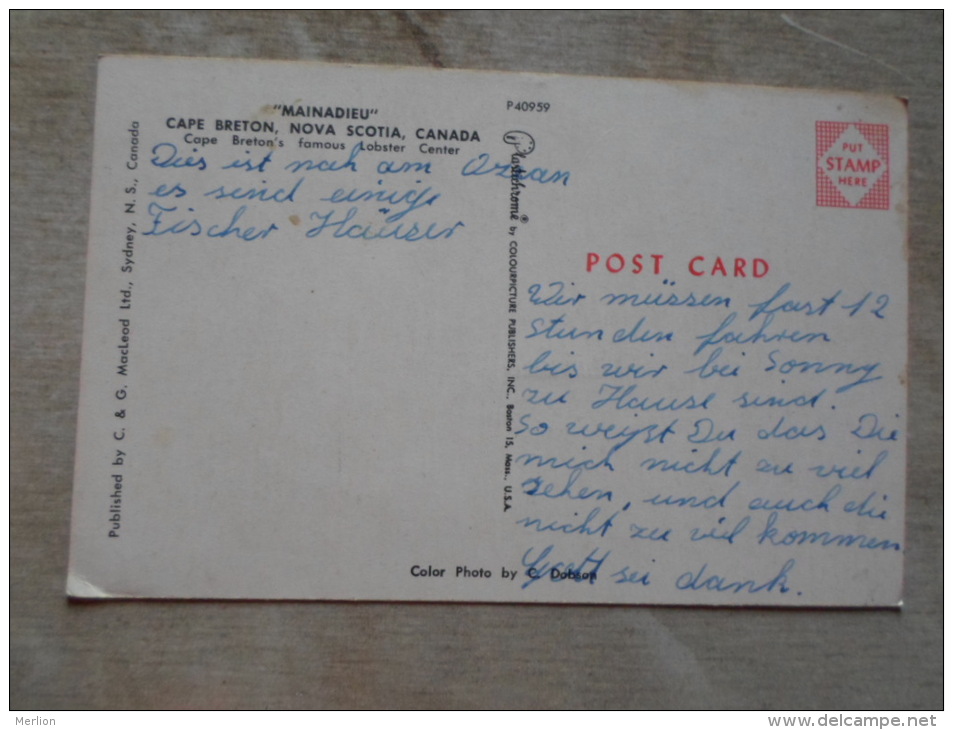 "MAINADIEU"
CAPE BRETON, NOVA SCOTIA, CANADA
Cape Breton's famous Lobster Center
Dies ist nah am Ozean
es sind einige
Fischer Häuser
Published by C. & G. MacLeod Ltd., Sydney, N. S., Canada
P40959
Plastichrome® by COLOURPICTURE PUBLISHERS, INC., Boston 15, Mass., U.S.A.
PUT
STAMP
HERE
POST CARD
Wir müssen fast 12
Stunden fahren
bis wir bei Sonny
zu Hause sind.
So weißt Du das Die
mich nicht zu viel
sehen, und auch die
nicht zu viel kommen
Gott sei dank.
Color Photo by C. Dobson
Merlion
http://www.delcampe.net